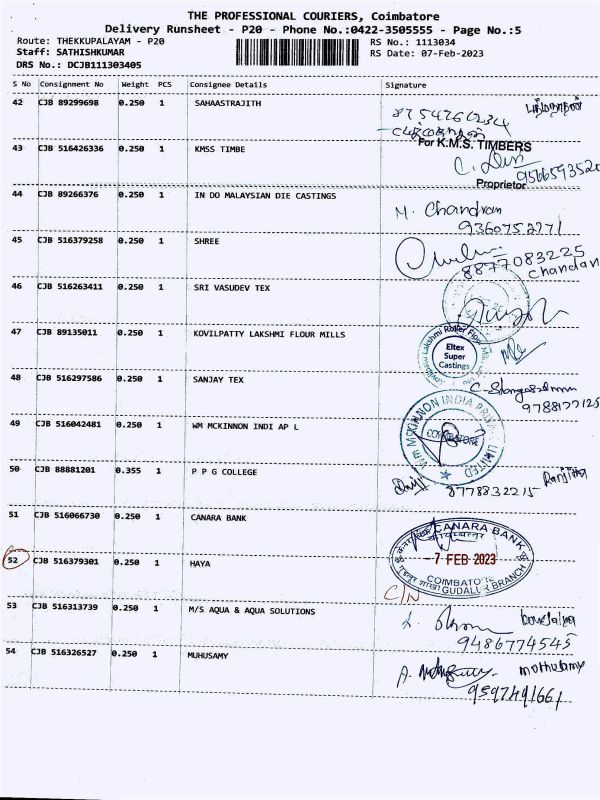 THE PROFESSIONAL COURIERS, Coimbatore
Delivery Runsheet - P20 - Phone No.:0422-3505555 - Page No.:5
Route: THEKKUPALAYAM - P20
RS No.: 1113034
Staff: SATHISHKUMAR
RS Date: 07-Feb-2023
DRS No.: DCJB111303405
S No Consignment No Weight PCS Consignee Details Signature
42 CJB 89299698 0.250 1 SAHAASTRAJITH
For K.M.S. TIMBERS
43 CJB 516426336 0.250 1 KMSS TIMBE
9566593520
Proprietor
44 CJB 89266376 0.250 1 IN DO MALAYSIAN DIE CASTINGS
M. Chandran
9360752771
45 CJB 516379258 0.250 1 SHREE
8877083225
Chandan
46 CJB 516263411 0.250 1 SRI VASUDEV TEX
47 CJB 89135011 0.250 1 KOVILPATTY LAKSHMI FLOUR MILLS
Lakshmi Roller Flour
Eltex
Super
Castings
48 CJB 516297586 0.250 1 SANJAY TEX
9788177125
49 CJB 516042481 0.250 1 WM MCKINNON INDI AP L
MCKINNON INDIA PRIVATE LIMITED
COIMBATORE
50 CJB 88881201 0.355 1 P P G COLLEGE
8778832215
51 CJB 516066730 0.250 1 CANARA BANK
CANARA BANK
- 7 FEB 2023
COIMBATORE
GUDALUR BRANCH
52 CJB 516379301 0.250 1 HAYA
C/N
53 CJB 516313739 0.250 1 M/S AQUA & AQUA SOLUTIONS
9486774545
54 CJB 516326527 0.250 1 MUHUSAMY
muthusamy
9597491661